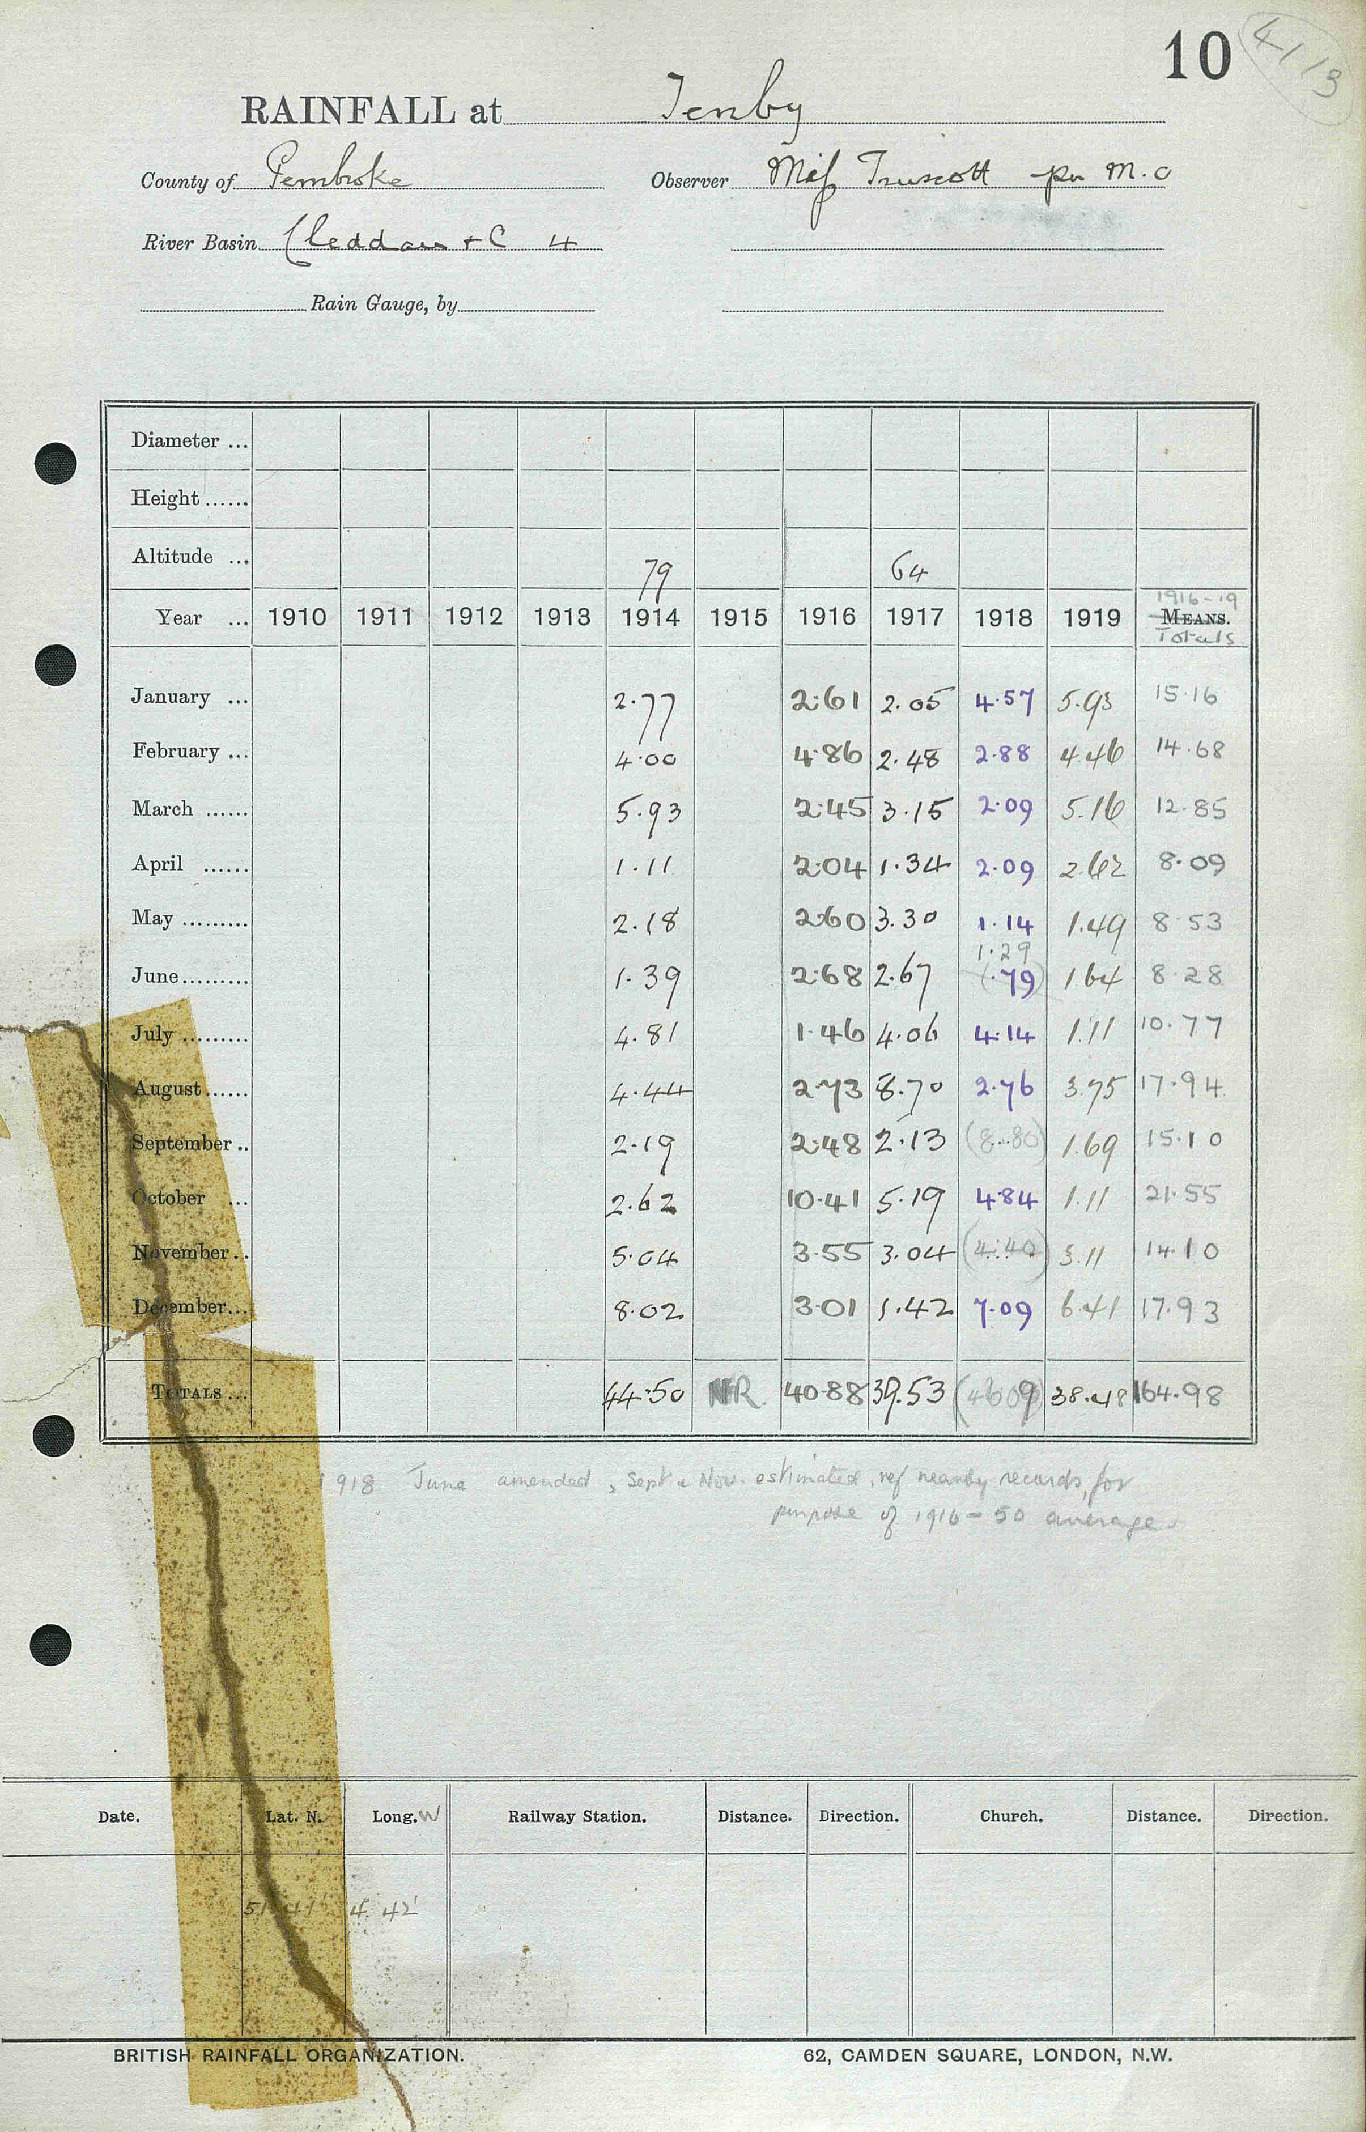 10
4113
RAINFALL at Tenby
County of Pembroke Observer Miss Truscott per M.O
River Basin Cleddau + C 4
Rain Gauge, by
Diameter ...
Height ......
Altitude ... 79 64
1916-19
Year ... 1910 1911 1912 1913 1914 1915 1916 1917 1918 1919 MEANS.
Totals
January ... 2.77 2.61 2.05 4.57 5.93 15.16
February ... 4.00 4.86 2.48 2.88 4.46 14.68
March ...... 5.93 2.45 3.15 2.09 5.16 12.85
April ...... 1.11 2.04 1.34 2.09 2.62 8.09
May ......... 2.18 2.60 3.30 1.14 1.49 8.53
1.29
June ......... 1.39 2.68 2.67 (.79) 1.64 8.28
July ......... 4.81 1.46 4.06 4.14 1.11 10.77
August ...... 4.44 2.73 8.70 2.76 3.75 17.94
September .. 2.19 2.48 2.13 (8.80) 1.69 15.10
October ... 2.62 10.41 5.19 4.84 1.11 21.55
November .. 5.04 3.55 3.04 (4.40) 3.11 14.10
December ... 8.02 3.01 1.42 7.09 6.41 17.93
TOTALS ... 44.50 NR 40.88 39.53 (46.09) 38.48 164.98
1918 June amended, Sept & Nov. estimated, ref nearby records, for
purpose of 1916-50 average
Date. Lat. N. Long. W Railway Station. Distance. Direction. Church. Distance. Direction.
51 41' 4 42'
BRITISH RAINFALL ORGANIZATION. 62, CAMDEN SQUARE, LONDON, N.W.